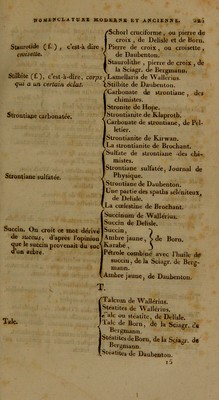 NOMENCLATURE MODERNE ET ANCIENNE.
Staurotide (f.), c'est-à-dire, croisette.
Schorl cruciforme, ou pierre de croix, de Delisle et de Born.
Pierre de croix, ou croisette, de Daubenton.
Staurolithe, pierre de croix, de la Sciagr. de Bergmann.
Stilbite (f.), c'est-à-dire, corps qui a un certain éclat.
Lamellaris de Wallerius.
Stilbite de Daubenton.
Strontiane carbonatée.
Carbonate de strontiane, des chimistes.
Stronite de Hope.
Strontianite de Klaproth.
Carbonate de strontiane, de Pelletier.
Strontianite de Kirwan.
La strontianite de Brochant.
Strontiane sulfatée.
Sulfate de strontiane des chimistes.
Strontiane sulfatée, Journal de Physique.
Strontiane de Daubenton.
Une partie des spaths séléniteux, de Delisle.
La cœlestine de Brochant.
Succin. On croit ce mot dérivé de succus, d'après l'opinion que le succin provenait du suc d'un arbre.
Succinum de Wallérius.
Succin de Delisle.
Succin,
Ambre jaune,
Karabé,
de Born.
Pétrole combiné avec l'huile de succin, de la Sciagr. de Bergmann.
Ambre jaune, de Daubenton.
T.
Talc.
Talcum de Wallérius.
Stéatites de Wallérius.
Talc ou stéatite, de Delisle.
Talc de Born, de la Sciagr. de Bergmann
Stéatites de Born, de la Sciagr. de Bergmann
Stéatites de Daubenton.
15